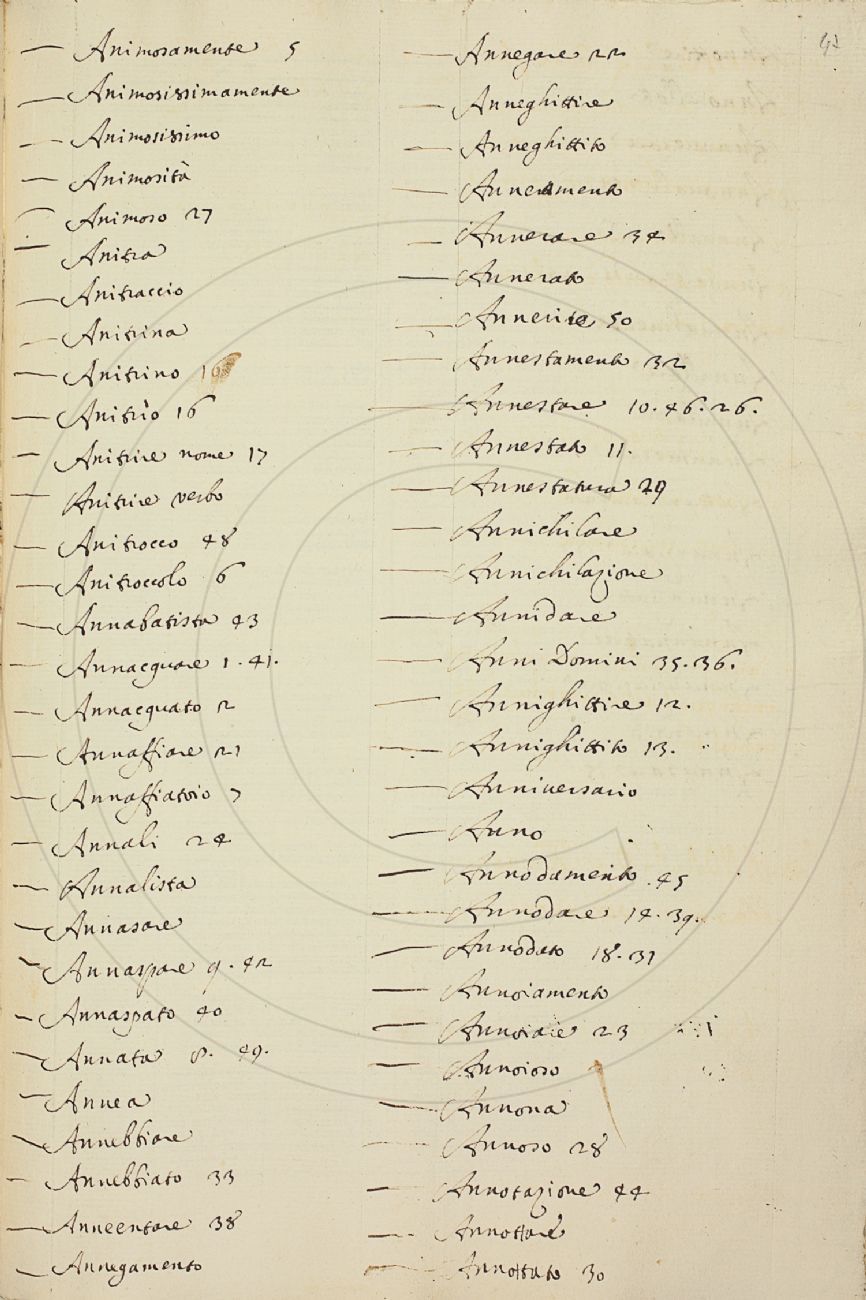 Animosamente 5
Animosissimamente
Animosissimo
Animosità
Animoso 27
Anitra
Anitraccio
Anitrina
Anitrino
Anitrio 16
Anitrire nome 17
Anitrire verbo
Anitrocco 48
Anitroccolo 6
Annabatista 43
Annacquare 1. 41.
Annacquato 2
Annaffiare 21
Annaffiatoio 7
Annali 24
Annalista
Annasare
Annaspare 9. 42
Annaspato 40
Annata 8. 49.
Annea
Annebbiare
Annebbiato 33
Anneentare 38
Annegamento
Annegare 22
Anneghittire
Anneghittito
Annerare 34
Annerato
Annerire 50
Annestamento 32
Annestare 10. 46. 26.
Annestato 11.
Annestatura 29
Annichilare
Annichilazione
Annidare
Anni Domini 35. 36.
Annighittire 12.
Annighittito 13.
Anniversario
Anno
Annodamento 45
Annodare 14. 39.
Annodato 18. 31
Annoiamento
Annoiare 23
Annoioso
Annona
Annoso 28
Annotazione 44
Annottare
Annottato 30